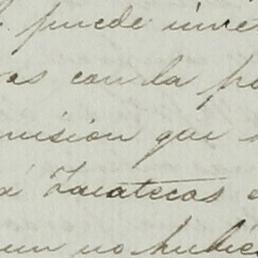 puede inve
as con la po
mision que
a Zacatecas
un no hubie